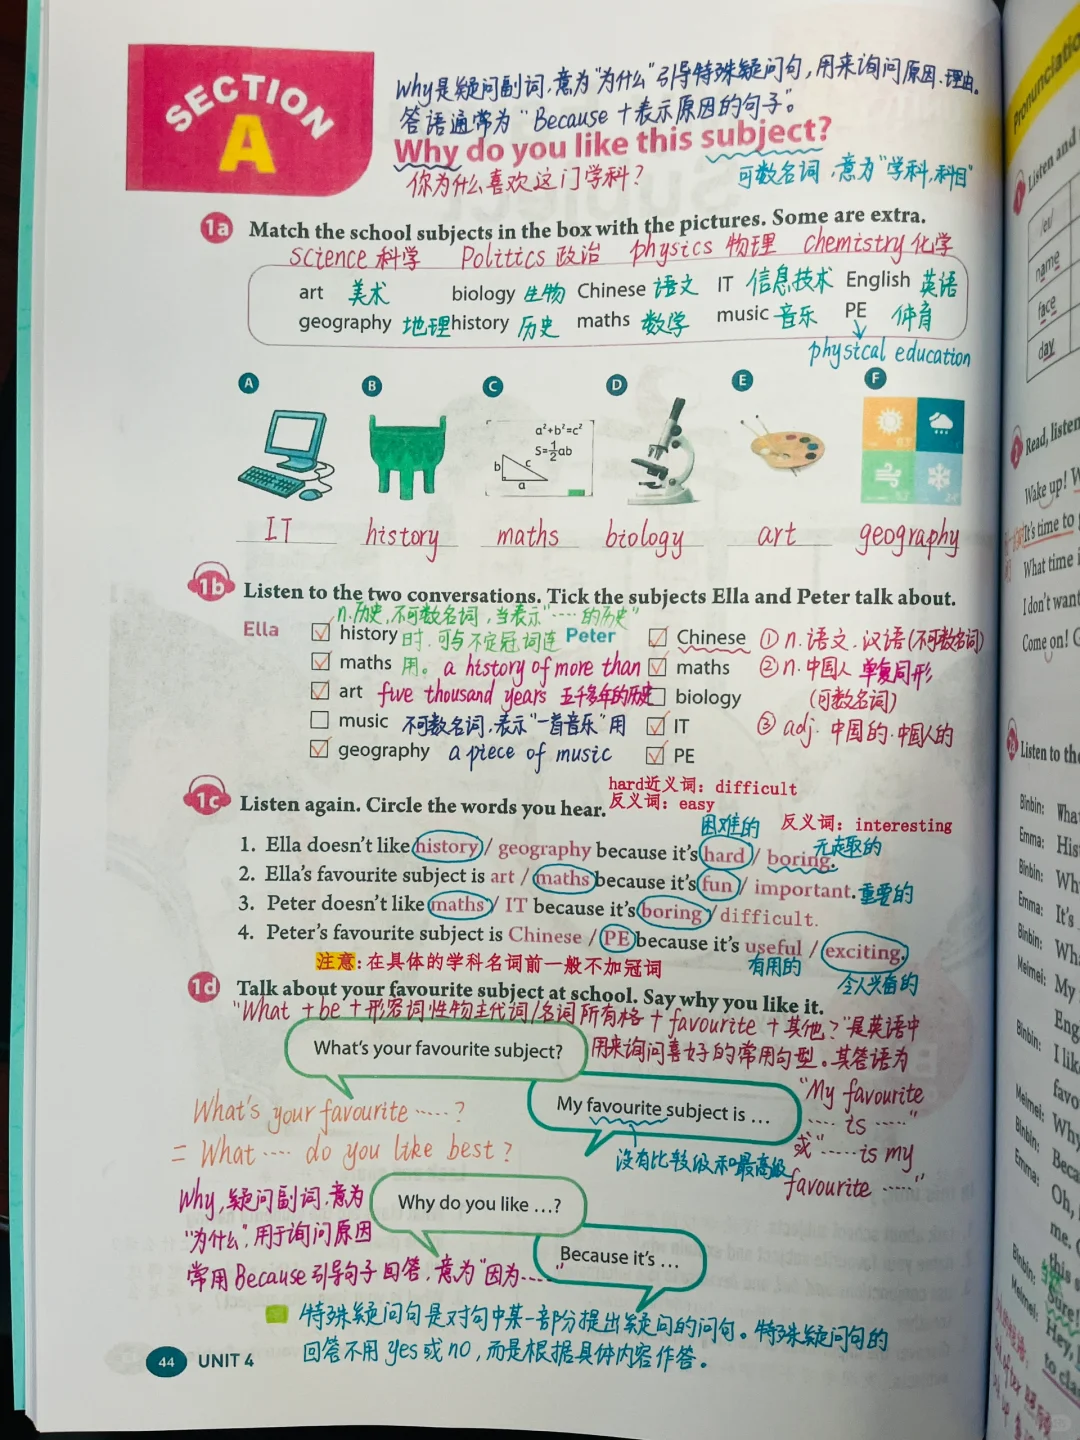 SECTION
A
why是疑问副词,意为"为什么"引导特殊疑问句,用来询问原因、理由。
答语通常为"Because+表示原因的句子"。
Why do you like this subject?
你为什么喜欢这门学科?
可数名词,意为"学科,科目"
1a Match the school subjects in the box with the pictures. Some are extra.
science 科学 Politics 政治 physics 物理 chemistry 化学
art 美术 biology 生物 Chinese 语文 IT 信息技术 English 英语
geography 地理 history 历史 maths 数学 music 音乐 PE 体育
physical education
A B C D E F
a²+b²=c²
S=½ab
b c
a
IT history maths biology art geography
1b Listen to the two conversations. Tick the subjects Ella and Peter talk about.
n.历史,不可数名词,当表示"……的历史"
时,可与不定冠词连
用。a history of more than
five thousand years 五千多年的历史
Ella
history
maths
art
music 不可数名词,表示"一首音乐"用
geography a piece of music
Peter
Chinese ① n.语文.汉语(不可数名词)
maths ② n.中国人 单复同形
biology (可数名词)
IT ③ adj.中国的.中国人的
PE
1c Listen again. Circle the words you hear.
hard近义词:difficult
反义词:easy
困难的 反义词:interesting
无趣的
1. Ella doesn't like history / geography because it's hard / boring.
2. Ella's favourite subject is art / maths because it's fun / important. 重要的
3. Peter doesn't like maths / IT because it's boring / difficult.
4. Peter's favourite subject is Chinese / PE because it's useful / exciting.
注意:在具体的学科名词前一般不加冠词
有用的
令人兴奋的
1d Talk about your favourite subject at school. Say why you like it.
"What+be+形容词性物主代词/名词所有格+favourite+其他?"是英语中
用来询问喜好的常用句型。其答语为
"My favourite
…… is ……"
或"……is my
favourite ……"
What's your favourite subject?
My favourite subject is ...
What's your favourite ……?
= What …… do you like best?
没有比较级和最高级
Why do you like ...?
Because it's ...
Why,疑问副词,意为
"为什么",用于询问原因
常用Because引导句子回答,意为"因为……"
特殊疑问句是对句中某一部分提出疑问的问句。特殊疑问句的
回答不用yes或no,而是根据具体内容作答。
44 UNIT 4
Pronunciation
Listen and
name
face
day
Read, listen
Wake up!
It's time to
What time i
I don't want
Come on!
Listen to the
Binbin: Wha
Emma: His
Binbin: Wh
Emma: It's
Binbin: Wha
Meimei: My
Eng
Binbin: I lik
favo
Meimei: Why
Binbin: Beca
Emma: Oh,
me.
Binbin: this s
Meimei: Sure!
Hey,
to cla